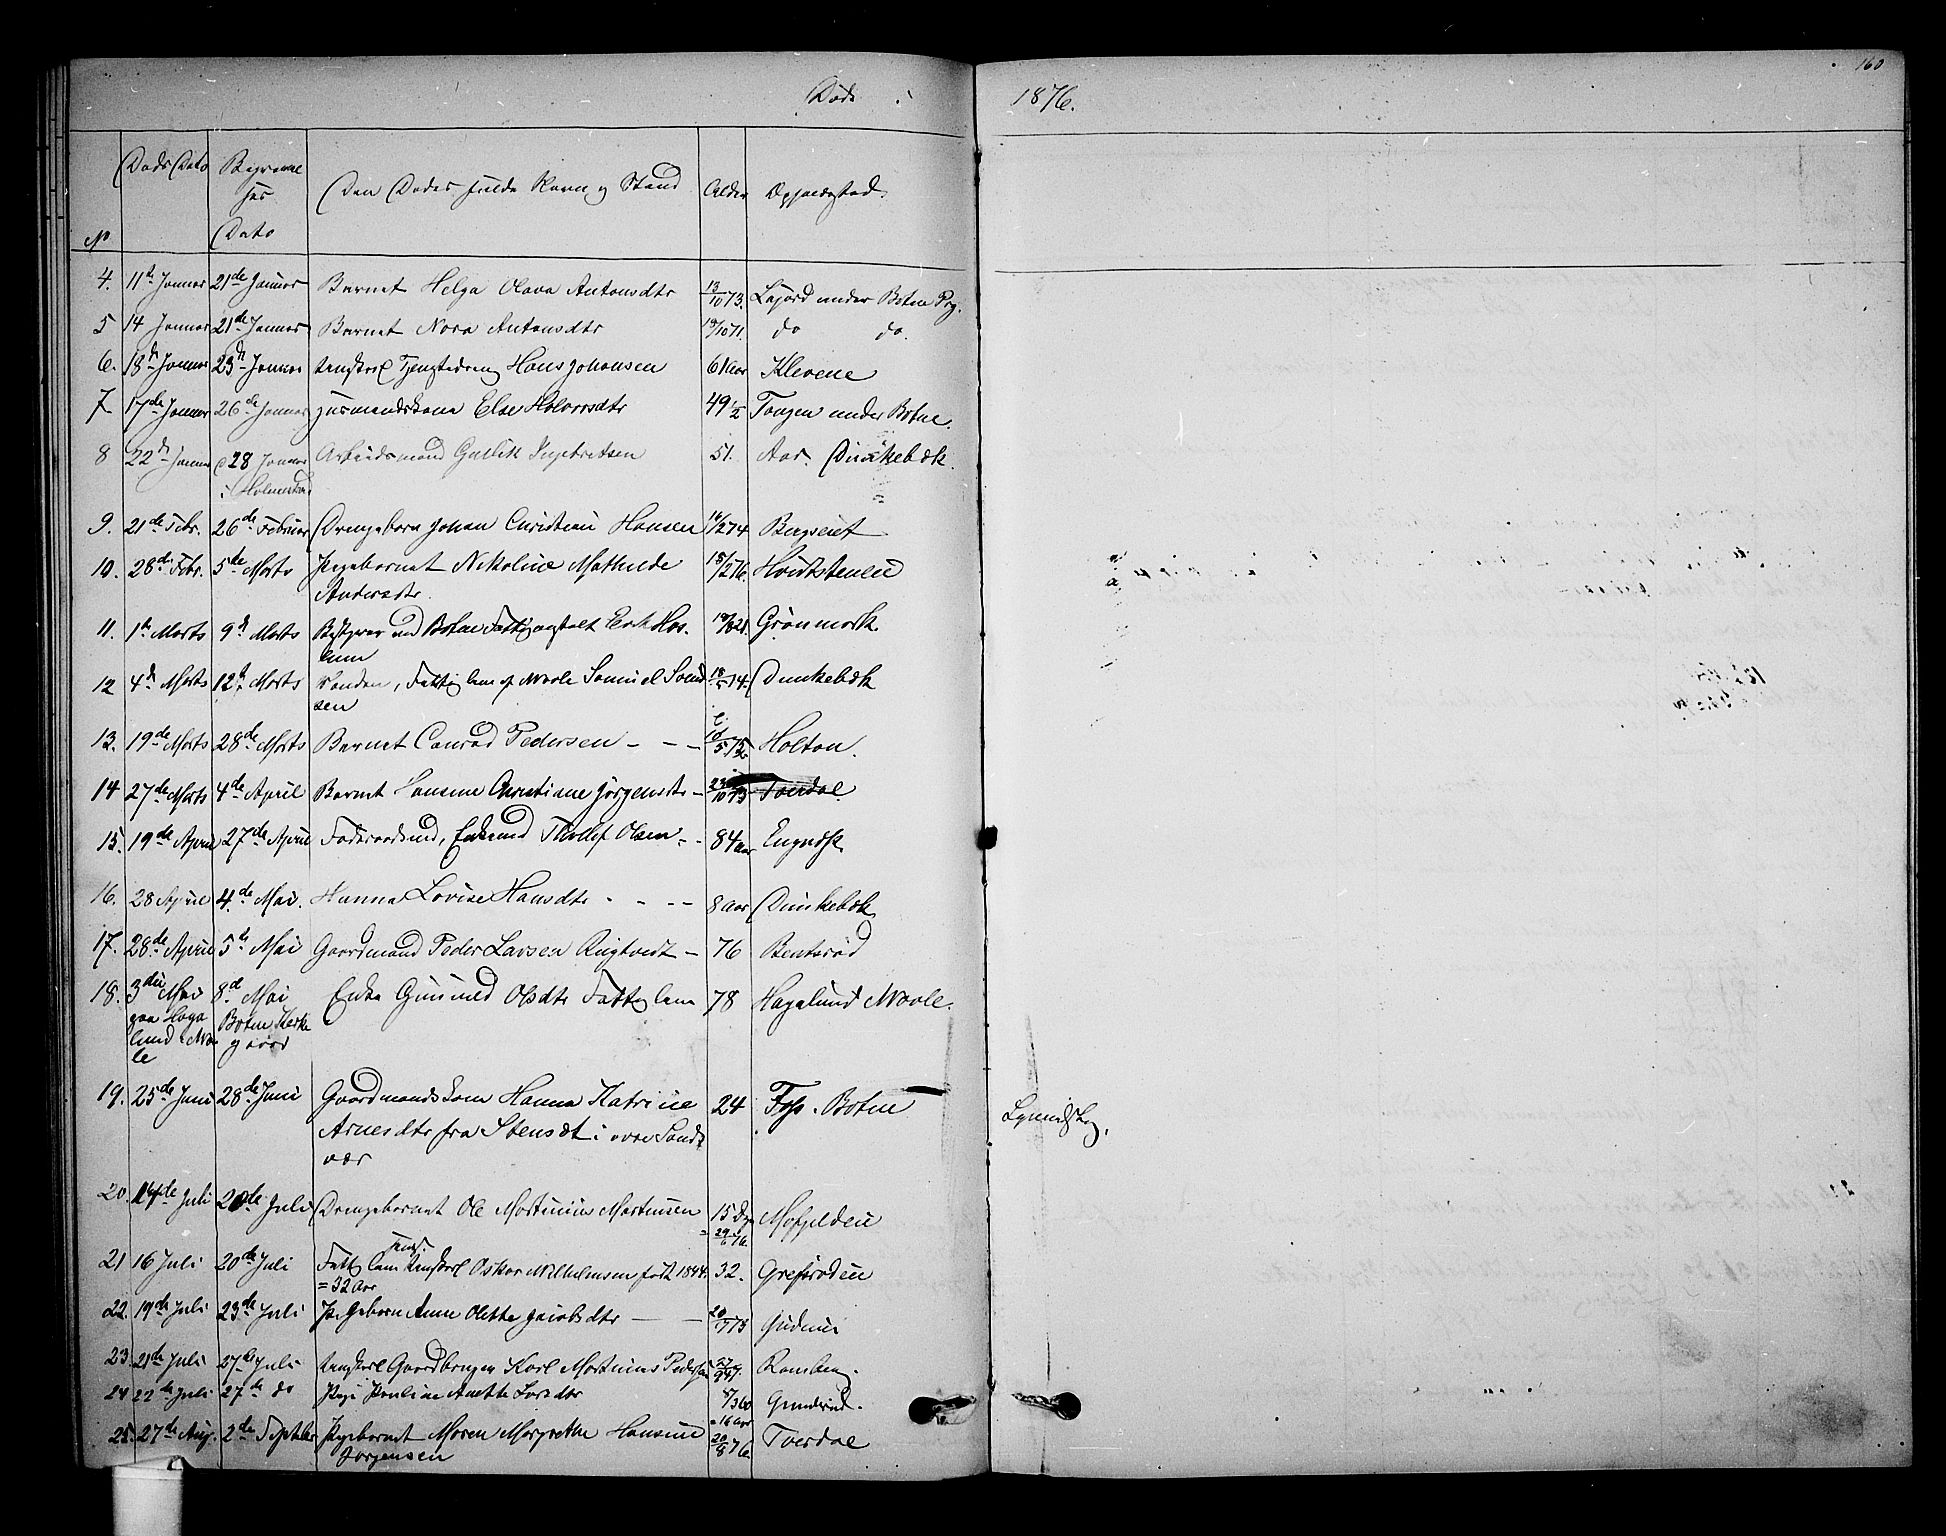 160
Døde i 1876.
No. Døds Dato Begravelses Dato Den Dødes fulde Navn og Stand Alder Opholdssted
4. 11te Januar 21de Januar Barnet Helga Olava Antonsdtr 13/10 73. Løjord under Botne Prg.
5 14 Januar 21de Januar Barnet Nora Antonsdtr 19/10 71. do do.
6. 18de Januar 23de Januar Ungkarl Tjenestedreng Hans Johansen 61 Aar Klevene
7 17de Januar 26de Januar Husmandskone Else Halvorsdtr 49 1/2 Tangen under Botne.
8 22de Januar 28 Januar Arbeidsmand Gullik Ingebretsen 51. Aar. Dunkebæk.
i Holmestrand
9. 21de Febr. 26de Februar Drengebarn Johan Christian Hansen 16/2 74 Bergseit
10. 28de Febr. 5te Marts Pigebarnet Nikoline Mathilde 15/2 76. Hvidtstenen
Andersdtr.
11. 1te Marts 9de Marts Bestyrer ved Botne Fattiganstalt Erik Has. 19/8 21. Grønmark
lum
12 4de Marts 12te Marts Fattiglem af Vaale Samuel Sand 18/5 14. Dunkebæk
sen
13. 19de Marts 28de Marts Barnet Conrad Pedersen - - - 10/5 75 Holtan.
14 27de Marts 4de April Barnet Hansine Christiane Jørgensdtr - 23/10 73 Tverdal
15. 19de April 27de April Føderaadsmd, Enkemd Thollef Olsen - - 84 Aar Engnæs
16. 28 April 4de Mai. Hanna Lovise Hansdtr - - - - 8 Aar Dunkebæk
17. 28de April 5te Mai Gaardmand Peder Larsen Rugtvedt - 76 Bentsrød
18. 3die Mai 8de Mai Enke Gunild Olsdtr Fattiglem 78 Hagalund Vaale.
paa Haga Botne Kirke
lund i Vaa gaard
le
19. 25de Juni 28de Juni Gaardmandskone Hanna Katrine 24 Fogs. Botne
Arnesdtr fra Stensæt i øvre Sands
vær
20. 14de Juli 20de Juli Drengebarnet Ole Martinius Martinsen 15 Dge Mofjelden
= 29/6 76.
21 16 Juli 20de Juli Fattiglem Ungkarl Oskar Wilhelmsen født 1844. 32. Grefsrøden
= 32 Aar
22. 19de Juli 23de Juli Pigebarn Anne Olette Jacobsdtr - - 20/7 75 Gudene
23. 21de Juli 27de Juli Ungkarl Gaardbruger Karl Martinius Pedersen 27/9 47. Ramberg.
24 22de Juli 27de do Pige Pauline Anette Larsdtr 8/3 60 Gunderød.
= 16 Aar
25. 27de Aug. 2de Septbr Pigebarnet Maren Margrethe Hansine 20/8 76. Tverdal
Jørgensen